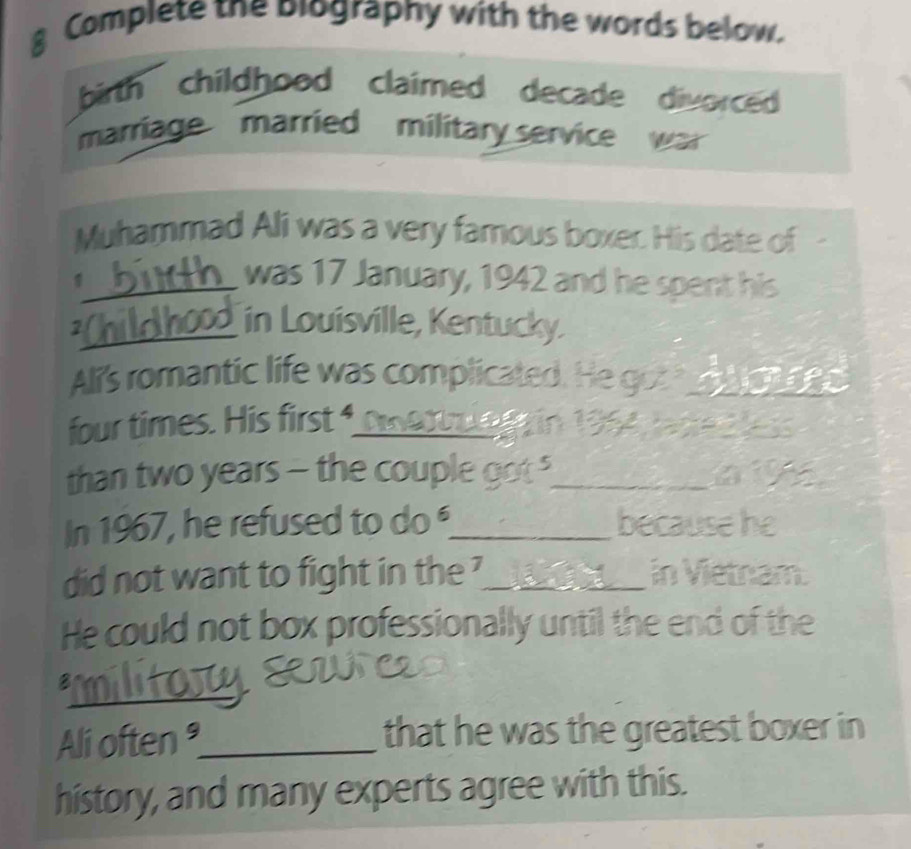 8 Complete the biography with the words below.
birth childhood claimed decade divorced
marriage married military service war
Muhammad Ali was a very famous boxer. His date of
1 birth was 17 January, 1942 and he spent his
2 Childhood in Louisville, Kentucky.
Ali's romantic life was complicated. He got 3 divorced
four times. His first 4 in 1964, less
than two years – the couple got 5 ________ in 1966.
In 1967, he refused to do 6 ________ because he
did not want to fight in the 7 in Vietnam.
He could not box professionally until the end of the
8 military service
Ali often 9 ________ that he was the greatest boxer in
history, and many experts agree with this.